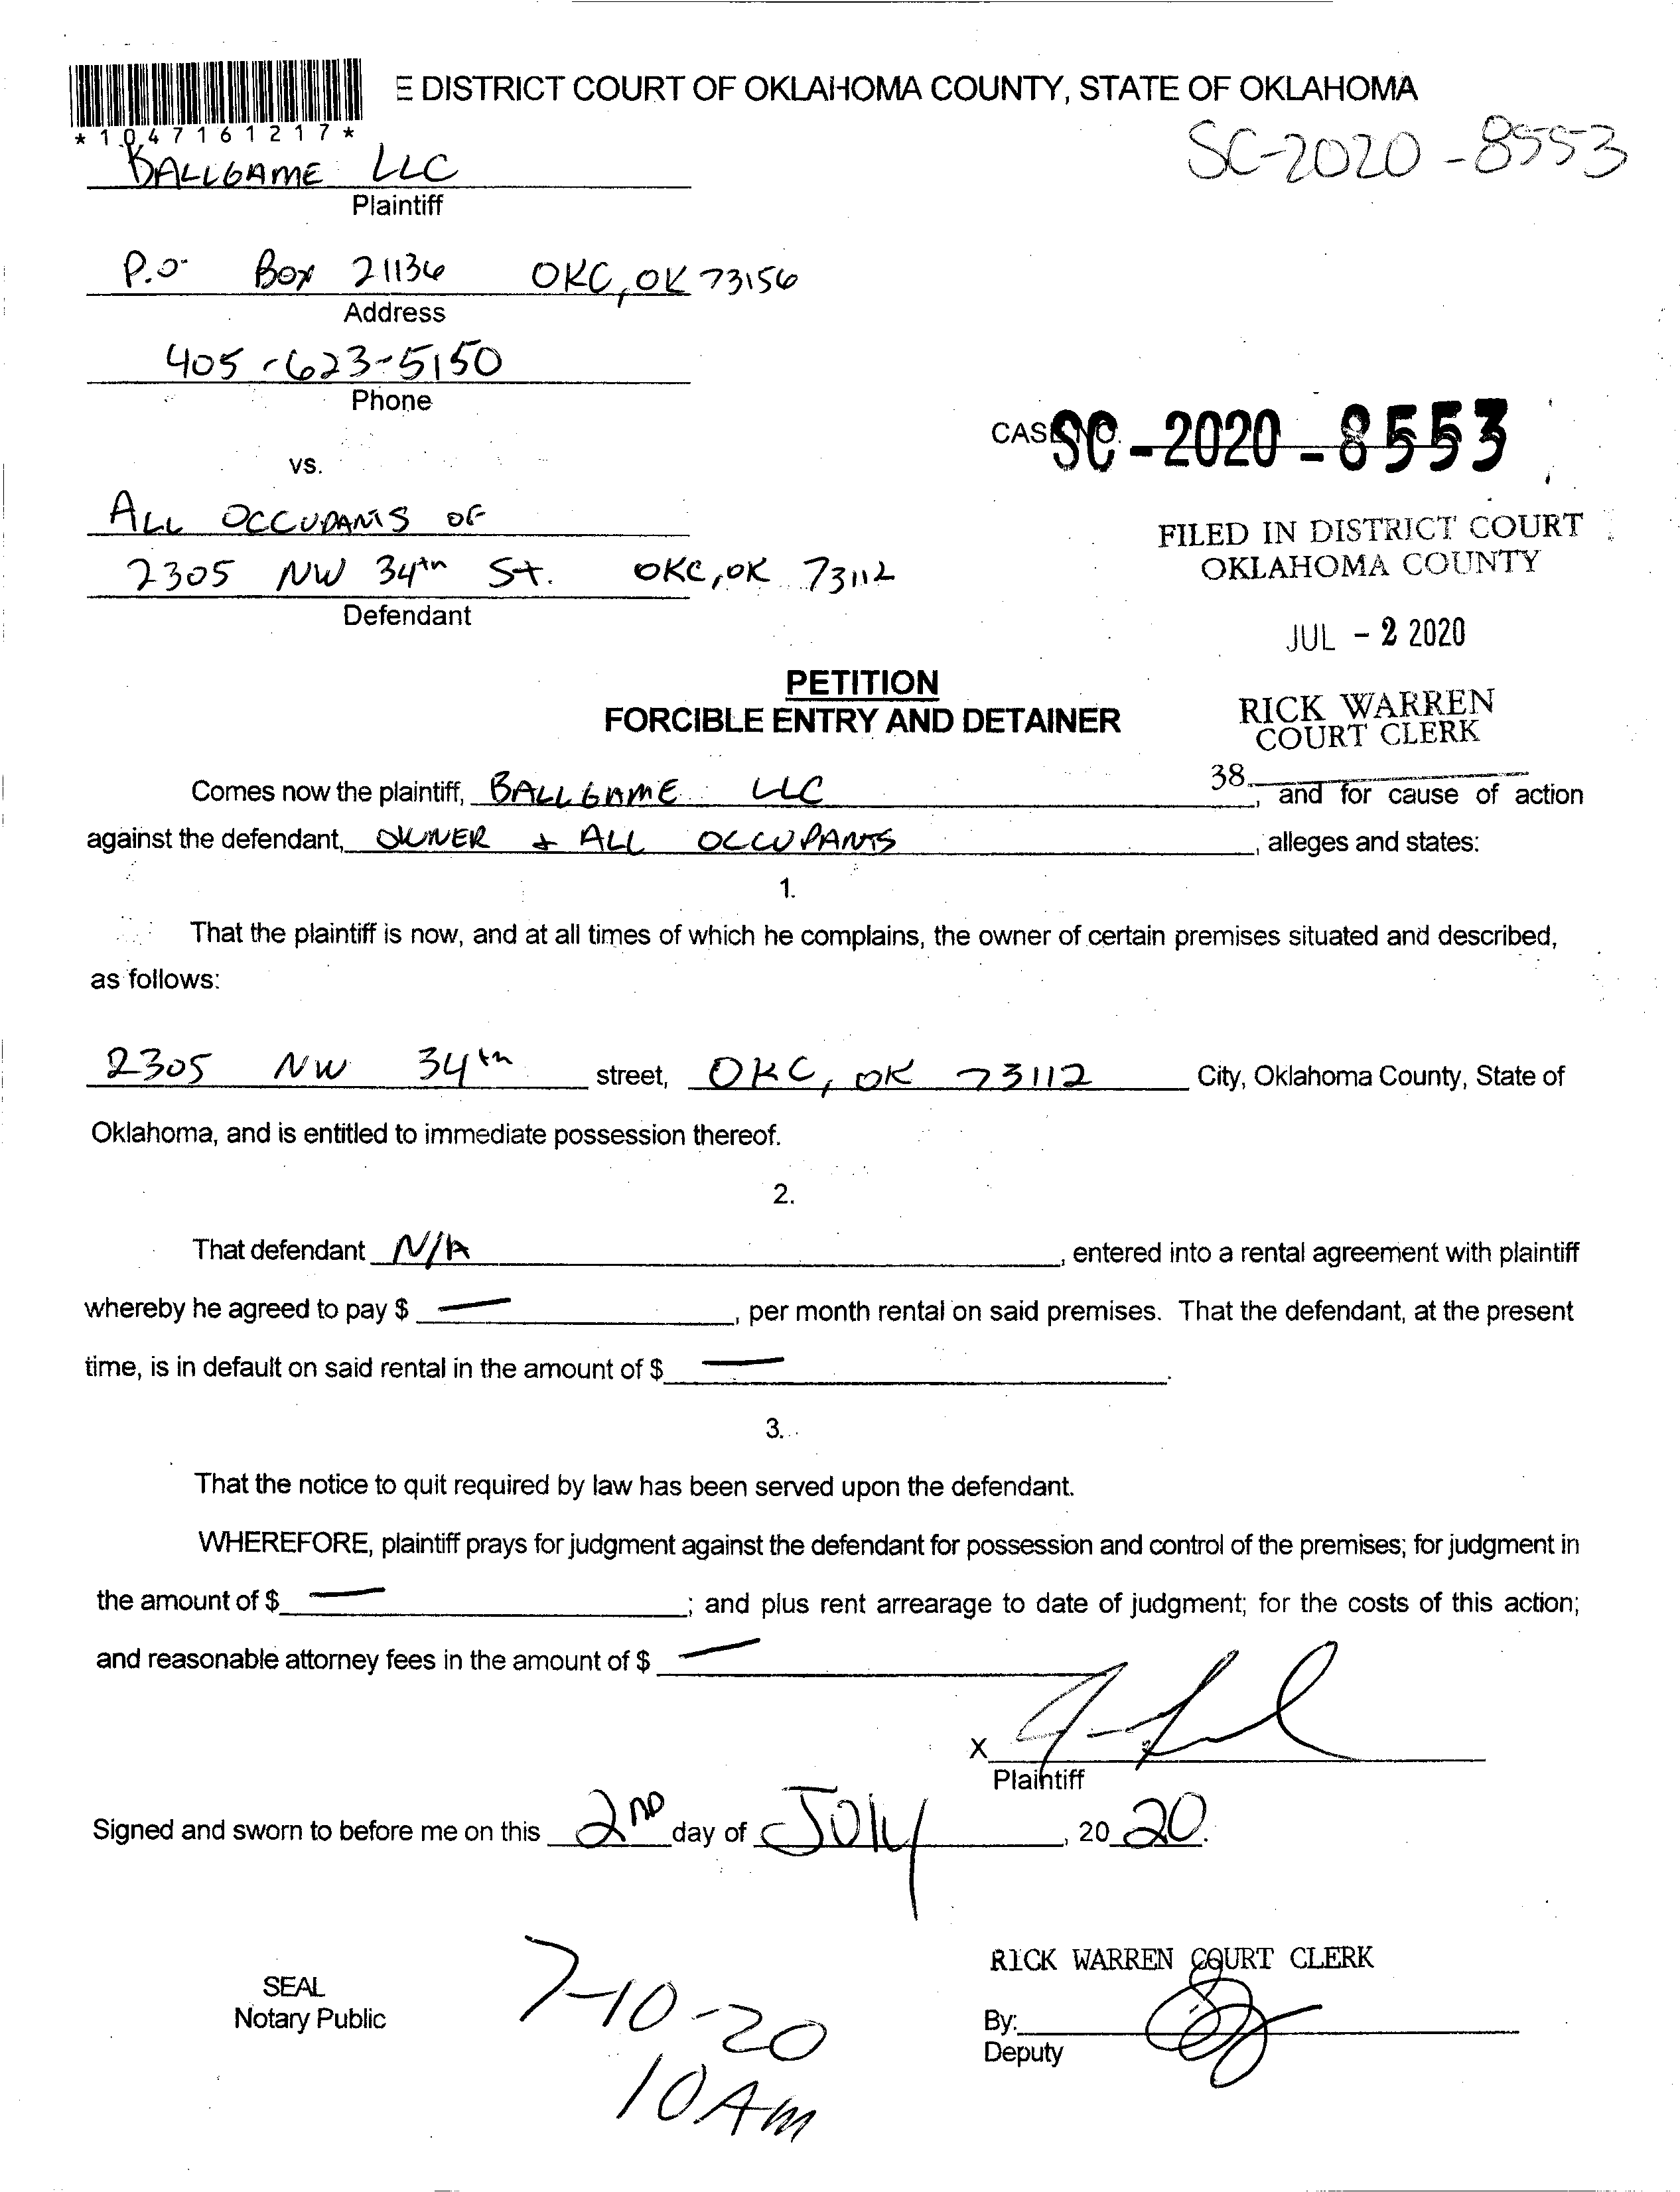 E DISTRICT COURT OF OKLAHOMA COUNTY, STATE OF OKLAHOMA
*1047161217*
SC-2020-8553
BALLGAME LLC
Plaintiff
P.O. Box 21136 OKC, OK 73156
Address
405-623-5150
Phone
CASE NO. SC-2020-8553
vs.
ALL OCCUPANTS OF
2305 NW 34th St. OKC, OK 73112
Defendant
FILED IN DISTRICT COURT
OKLAHOMA COUNTY
JUL - 2 2020
PETITION
FORCIBLE ENTRY AND DETAINER
RICK WARREN
COURT CLERK
38
Comes now the plaintiff, BALLGAME LLC, and for cause of action
against the defendant, OWNER + ALL OCCUPANTS, alleges and states:
1.
That the plaintiff is now, and at all times of which he complains, the owner of certain premises situated and described,
as follows:
2305 NW 34th street, OKC, OK 73112 City, Oklahoma County, State of
Oklahoma, and is entitled to immediate possession thereof.
2.
That defendant N/A, entered into a rental agreement with plaintiff
whereby he agreed to pay $ —, per month rental on said premises. That the defendant, at the present
time, is in default on said rental in the amount of $ —.
3.
That the notice to quit required by law has been served upon the defendant.
WHEREFORE, plaintiff prays for judgment against the defendant for possession and control of the premises; for judgment in
the amount of $ —; and plus rent arrearage to date of judgment; for the costs of this action;
and reasonable attorney fees in the amount of $ —
X
Plaintiff
Signed and sworn to before me on this 2nd day of July, 2020.
RICK WARREN COURT CLERK
SEAL
Notary Public
7-10-20
10 Am
By:
Deputy